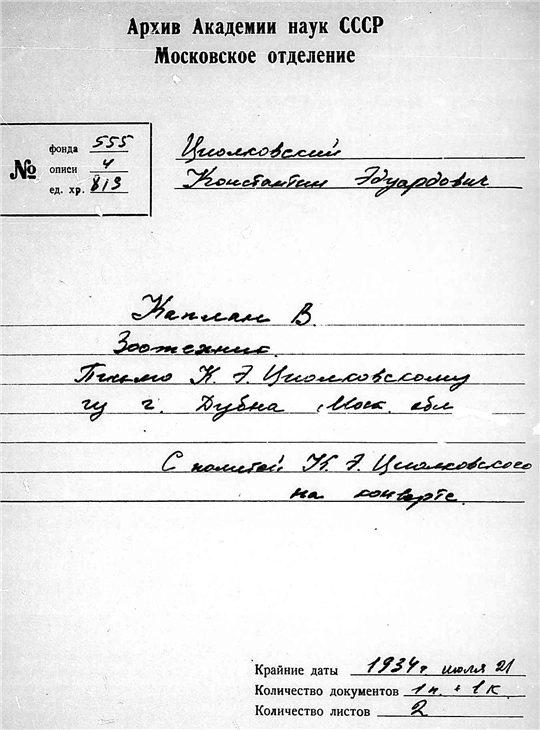 Архив Академии наук СССР
Московское отделение
№
фонда 555
описи 4
ед. хр. 813
Циолковский
Константин Эдуардович
Каплан В.
Зоотехник.
Письмо К. Э. Циолковскому
из г. Дубна, Моск. обл
С пометой К. Э. Циолковского
на конверте.
Крайние даты 1934 г. июля 21
Количество документов 1 п. + 1 к.
Количество листов 2